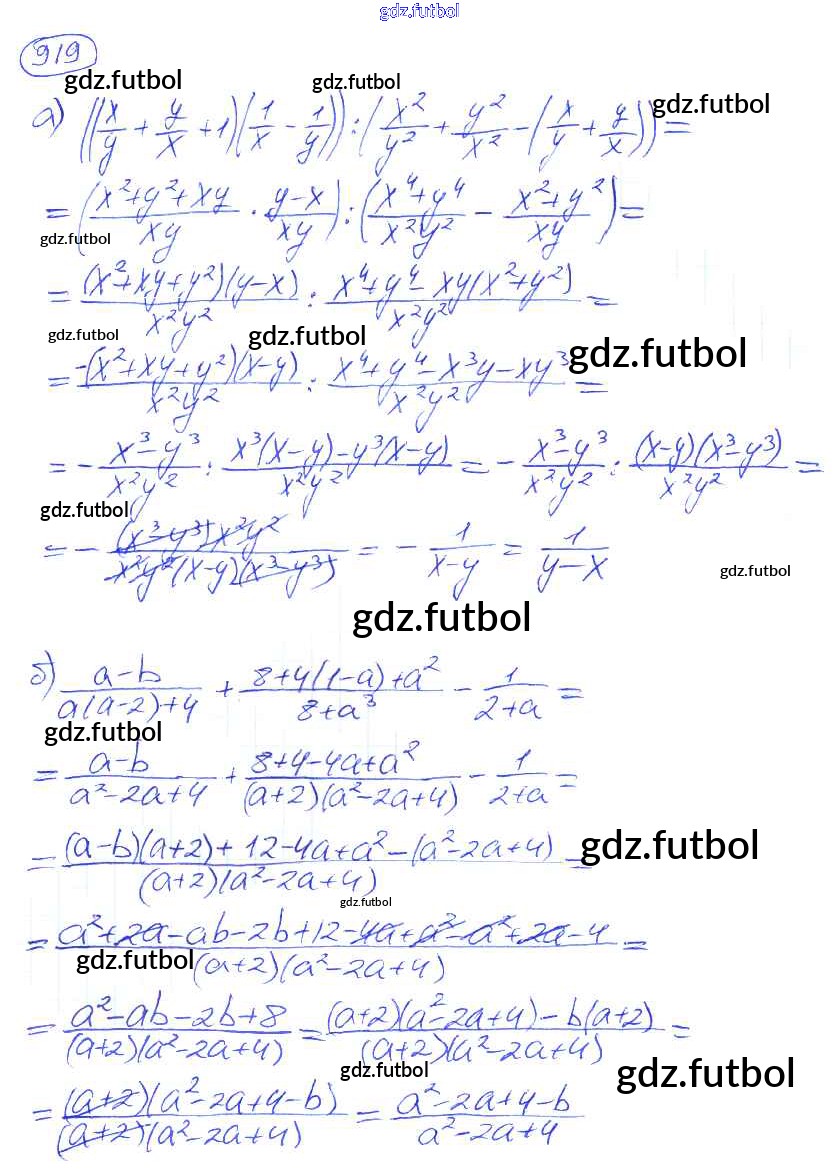 gdz.futbol
919
gdz.futbol gdz.futbol gdz.futbol
а) ((x/y + y/x + 1)(1/x - 1/y)) : (x²/y² + y²/x² - (x/y + y/x)) =
= (x²+y²+xy/xy · y-x/xy) : (x⁴+y⁴/x²y² - x²+y²/xy) =
gdz.futbol
= (x²+xy+y²)(y-x)/x²y² : x⁴+y⁴-xy(x²+y²)/x²y² =
gdz.futbol gdz.futbol gdz.futbol
= -(x²+xy+y²)(x-y)/x²y² : x⁴+y⁴-x³y-xy³/x²y² =
= - x³-y³/x²y² : x³(x-y)-y³(x-y)/x²y² = - x³-y³/x²y² : (x-y)(x³-y³)/x²y² =
gdz.futbol
= - (x³-y³)x²y²/x²y²(x-y)(x³-y³) = - 1/x-y = 1/y-x
gdz.futbol
gdz.futbol
б) a-b/a(a-2)+4 + 8+4(1-a)+a²/8+a³ - 1/2+a =
gdz.futbol
= a-b/a²-2a+4 + 8+4-4a+a²/(a+2)(a²-2a+4) - 1/2+a =
= (a-b)(a+2)+12-4a+a²-(a²-2a+4)/(a+2)(a²-2a+4) =
gdz.futbol
gdz.futbol
= a²+2a-ab-2b+12-4a+a²-a²+2a-4/(a+2)(a²-2a+4) =
gdz.futbol
= a²-ab-2b+8/(a+2)(a²-2a+4) = (a+2)(a²-2a+4)-b(a+2)/(a+2)(a²-2a+4) =
gdz.futbol gdz.futbol
= (a+2)(a²-2a+4-b)/(a+2)(a²-2a+4) = a²-2a+4-b/a²-2a+4